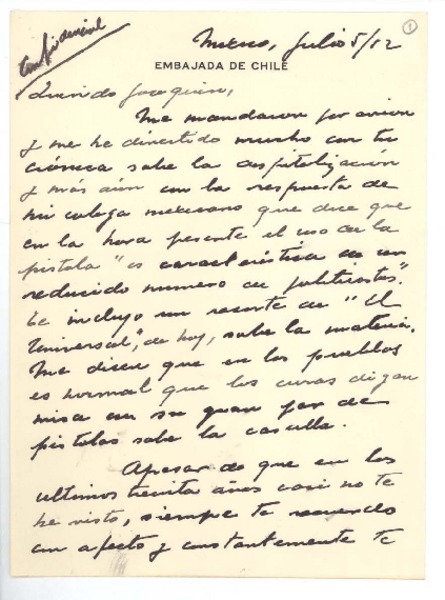 1
Confidencial
Mexico, Julio 5/52
EMBAJADA DE CHILE
Querido Joaquin,
Me mandaron por avion
y me he divertido mucho con tu
crónica sobre la despistolizacion
y más aún con la respuesta de
mi colega mexicano que dice que
en la hora presente el uso de la
pistola "es caracteristica de un
reducido numero de politicastros".
Te incluyo un recorte de "El
Universal", de hoy, sobre la materia.
Me dicen que en los pueblos
es normal que los curas digan
misa con su gran par de
pistolas sobre la casulla.
Apesar de que en los
ultimos treinta años casi no te
he visto, siempre te recuerdo
con afecto y constantemente te